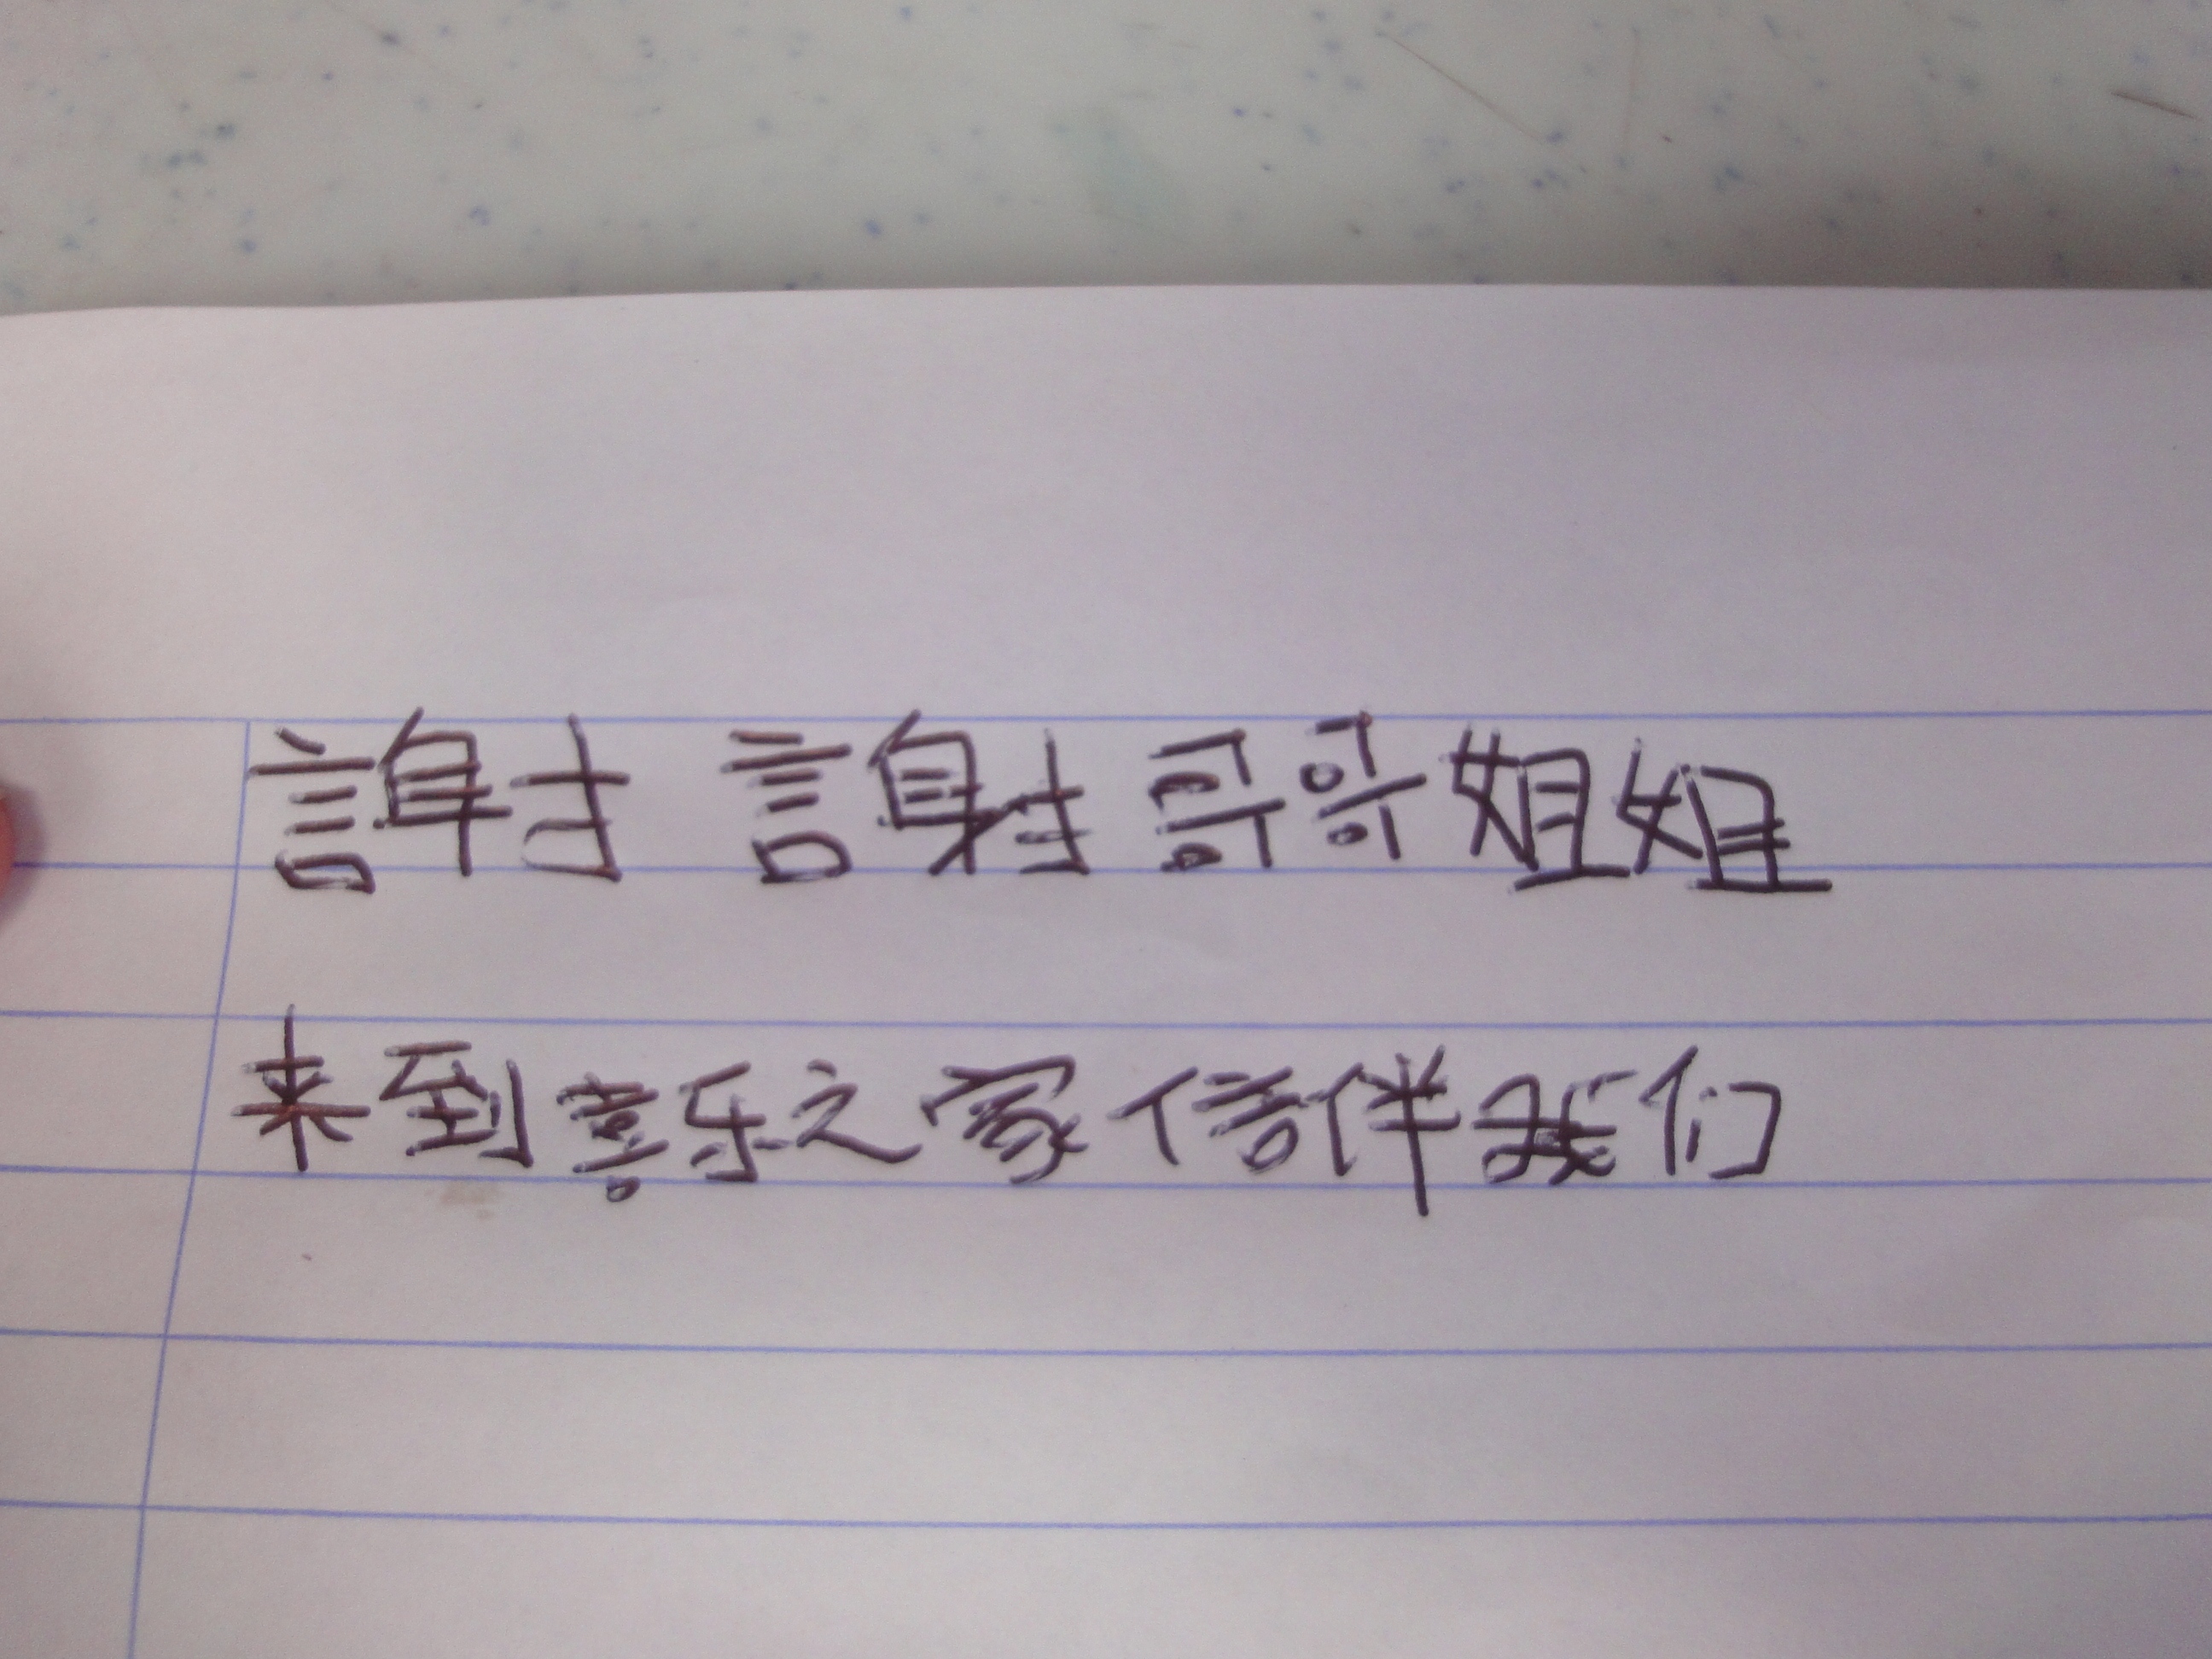 謝 謝哥哥姐姐
来到喜乐之家倍伴我们